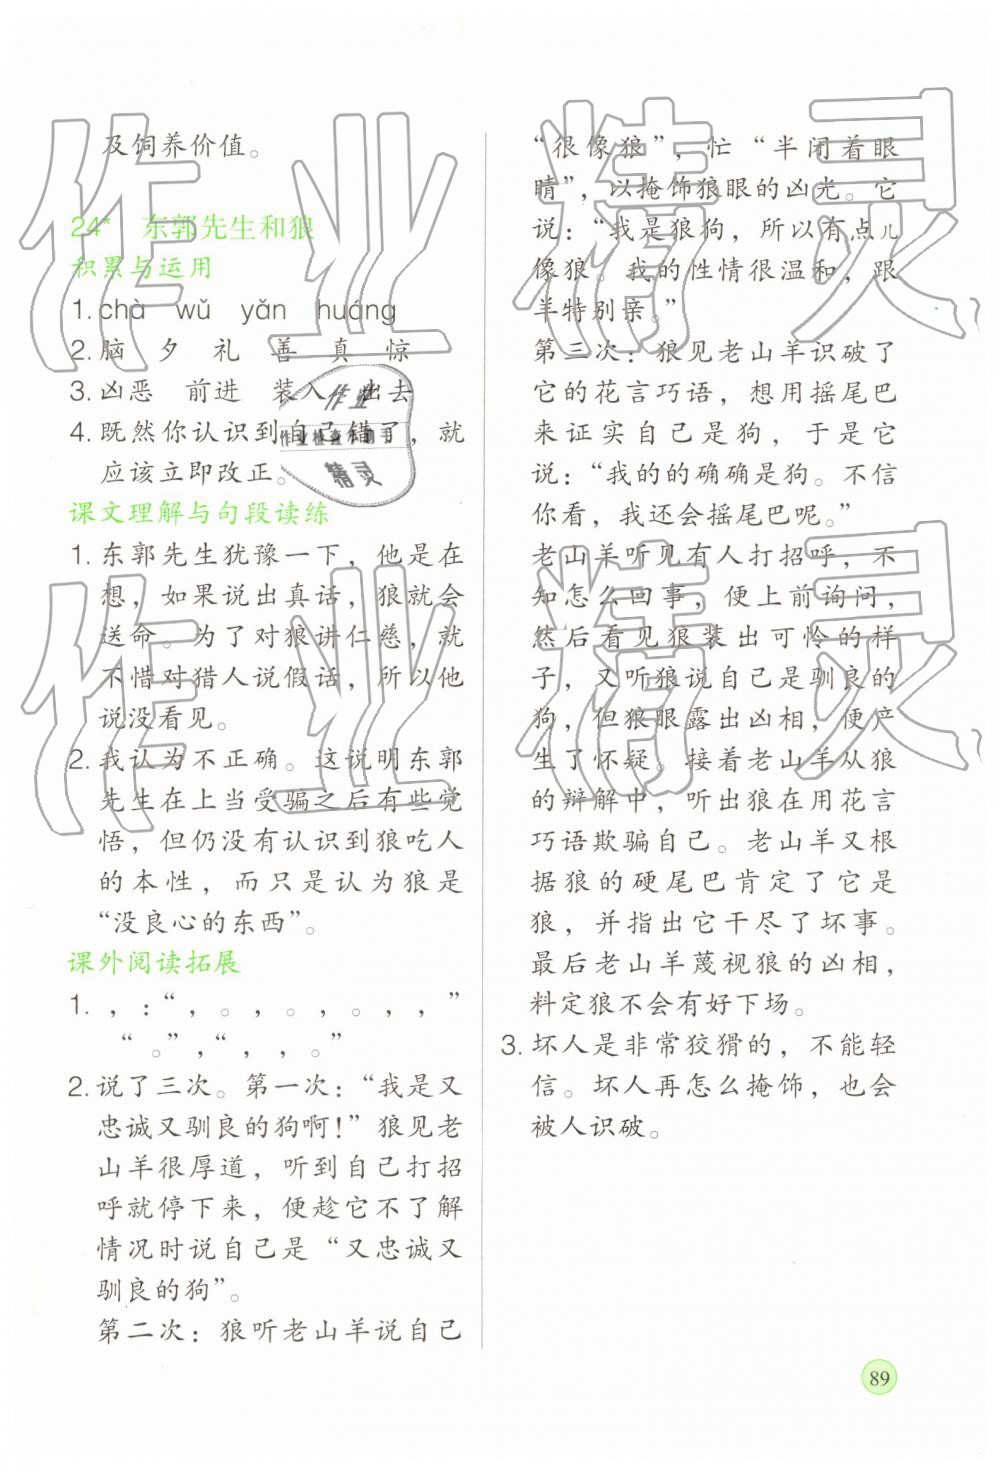 及饲养价值。
24* 东郭先生和狼
积累与运用
1. chà wǔ yǎn huáng
2. 脑 夕 礼 善 真 惊
3. 凶恶 前进 装入 出去
4. 既然你认识到自己错了，就
应该立即改正。
课文理解与句段读练
1. 东郭先生犹豫一下，他是在
想，如果说出真话，狼就会
送命。为了对狼讲仁慈，就
不惜对猎人说假话，所以他
说没看见。
2. 我认为不正确。这说明东郭
先生在上当受骗之后有些觉
悟，但仍没有认识到狼吃人
的本性，而只是认为狼是
“没良心的东西”。
课外阅读拓展
1. ，：“，。，。，。，，”
“。”，“，，。”
2. 说了三次。第一次：“我是又
忠诚又驯良的狗啊！”狼见老
山羊很厚道，听到自己打招
呼就停下来，便趁它不了解
情况时说自己是“又忠诚又
驯良的狗”。
第二次：狼听老山羊说自己
“很像狼”，忙“半闭着眼
睛”，以掩饰狼眼的凶光。它
说：“我是狼狗，所以有点儿
像狼。我的性情很温和，跟
羊特别亲。”
第三次：狼见老山羊识破了
它的花言巧语，想用摇尾巴
来证实自己是狗，于是它
说：“我的的确确是狗。不信
你看，我还会摇尾巴呢。”
老山羊听见有人打招呼，不
知怎么回事，便上前询问，
然后看见狼装出可怜的样
子，又听狼说自己是驯良的
狗，但狼眼露出凶相，便产
生了怀疑。接着老山羊从狼
的辩解中，听出狼在用花言
巧语欺骗自己。老山羊又根
据狼的硬尾巴肯定了它是
狼，并指出它干尽了坏事。
最后老山羊蔑视狼的凶相，
料定狼不会有好下场。
3. 坏人是非常狡猾的，不能轻
信。坏人再怎么掩饰，也会
被人识破。
89
作业精灵
作业精灵
作业
作业检查小助手
精灵